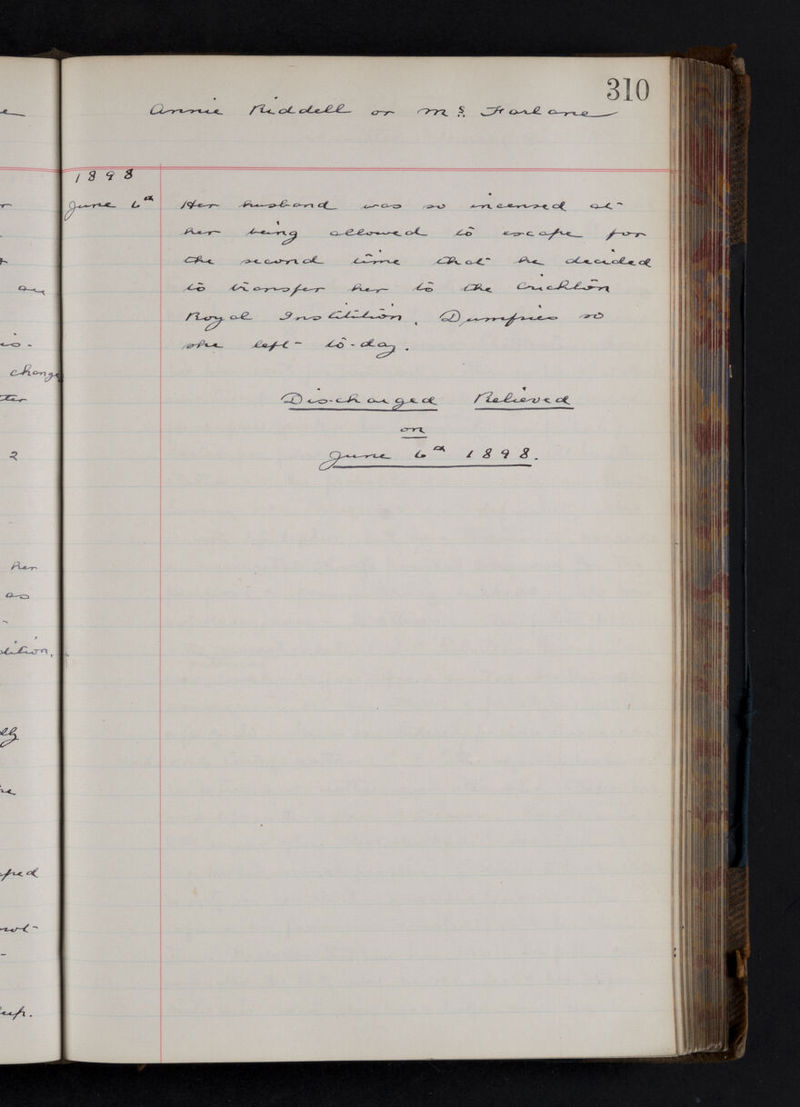 310
Annie Riddell or McFarlane
1898
June 6th Her husband was so incensed at
her being allowed to escape for
the second time that he decided
to transfer her to the Crichton
Royal Institution, Dumfries so
she left to-day.
Discharged Relieved
on
June 6th 1898.
change
2
her
as
not
up.